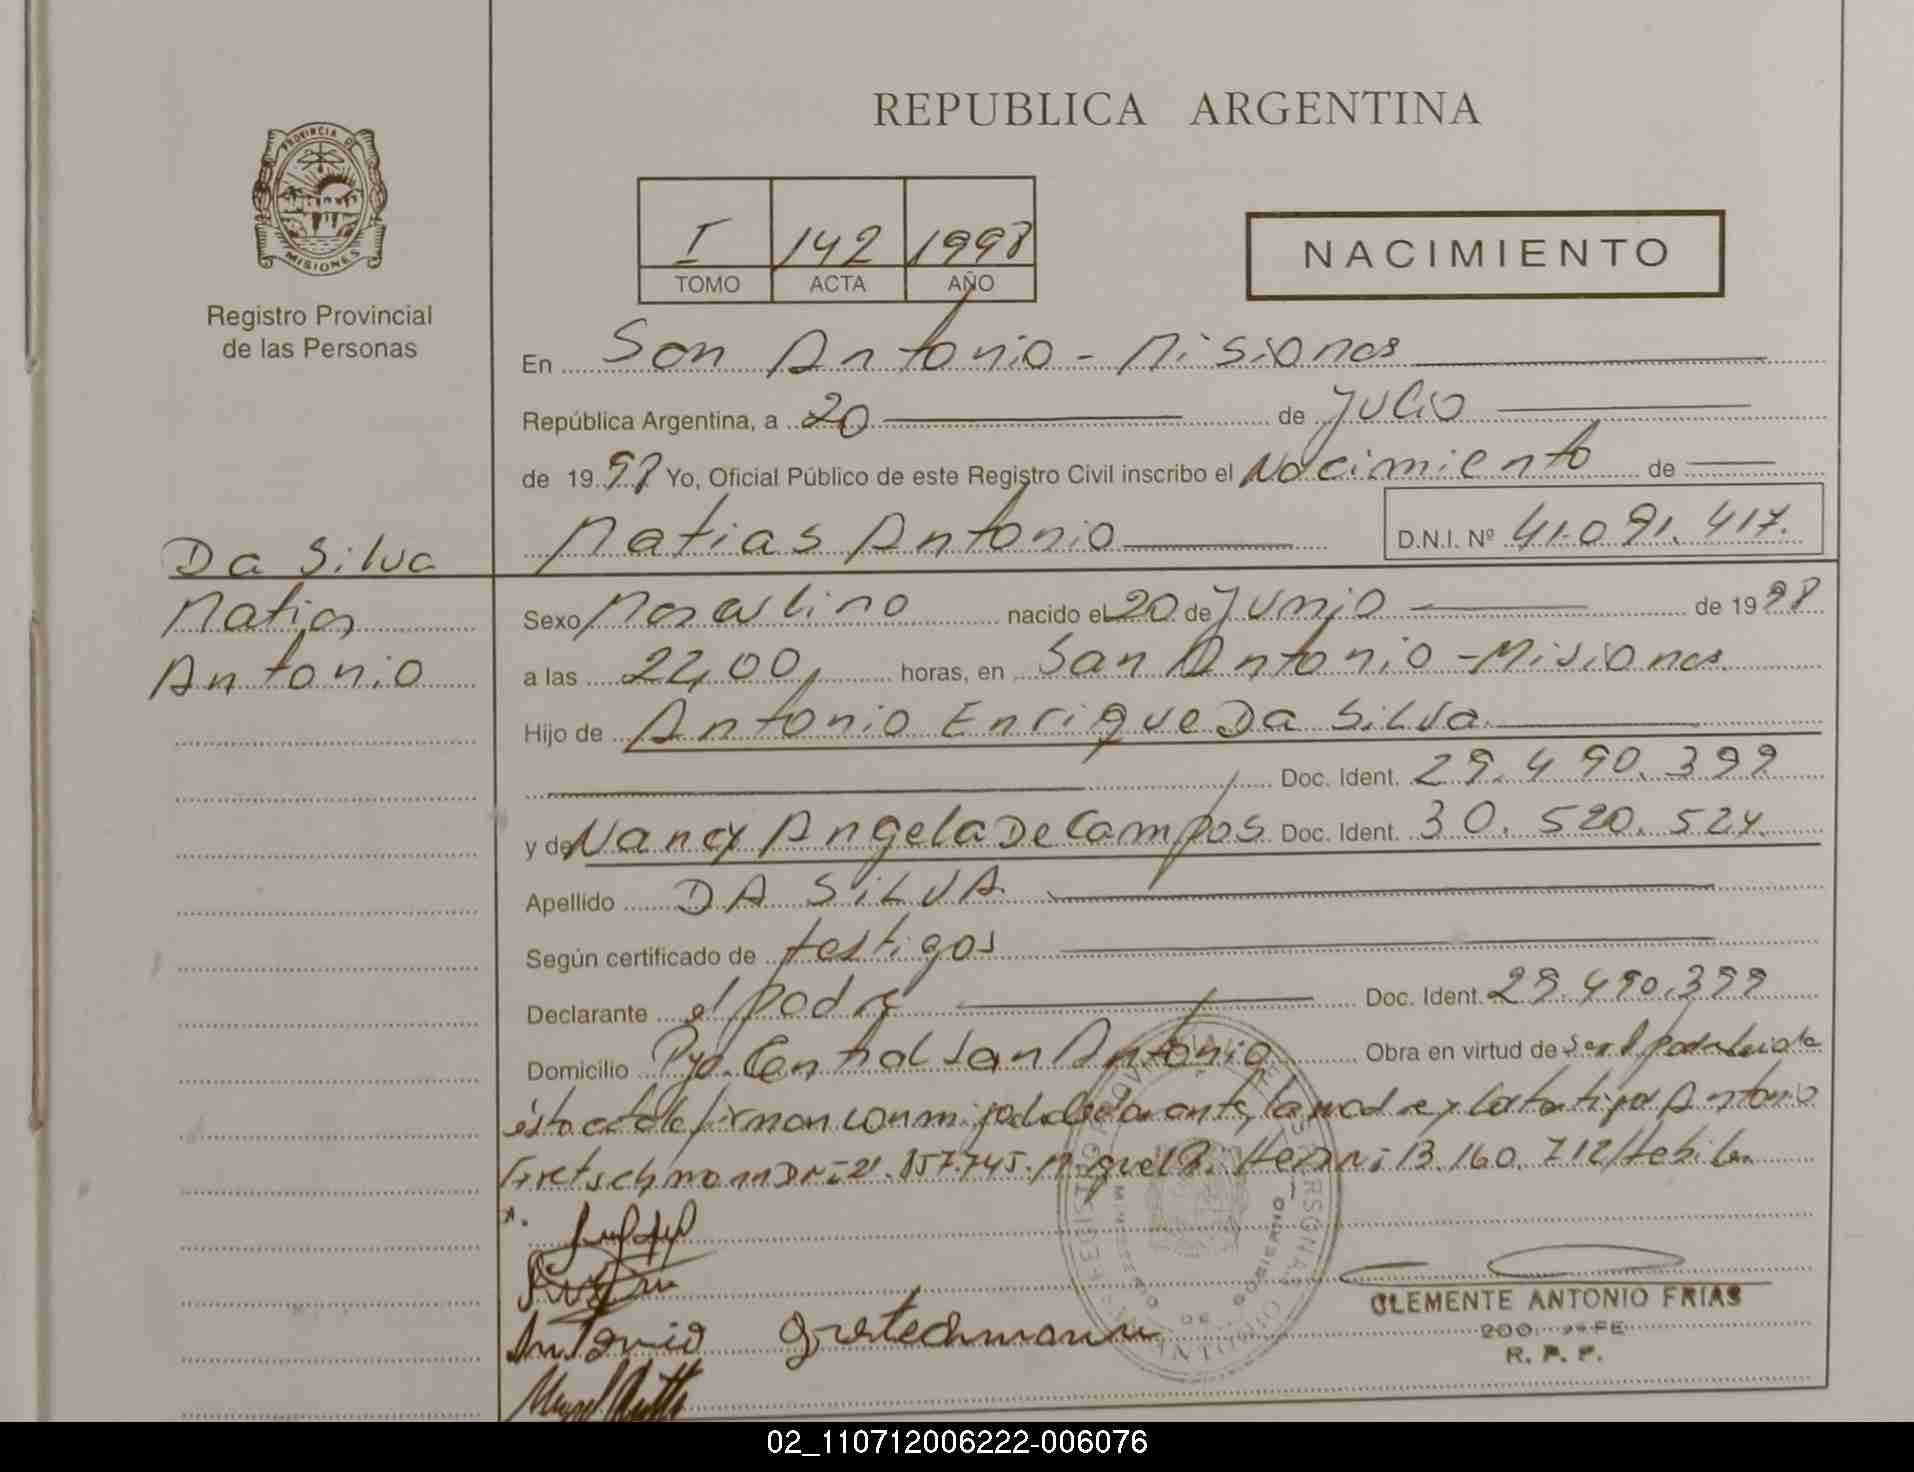 REPUBLICA ARGENTINA
PROVINCIA DE
MISIONES
Registro Provincial
de las Personas
I 142 1998
TOMO ACTA AÑO
NACIMIENTO
En San Antonio - Misiones
República Argentina, a 20 de Julio
de 1998 Yo, Oficial Público de este Registro Civil inscribo el Nacimiento de
Matias Antonio D.N.I. Nº 41.091.417.
Da Silva
Matias
Antonio
Sexo Masculino nacido el 20 de Junio de 1998
a las 22,00 horas, en San Antonio - Misiones
Hijo de Antonio Enrique Da Silva
Doc. Ident. 29.490.399
y de Nancy Angela De Campos Doc. Ident. 30.520.524
Apellido DA SILVA
Según certificado de testigos
Declarante el padre Doc. Ident. 29.490.399
Domicilio Pje. Central San Antonio Obra en virtud de ser el padre leida
ésta acta la firman conmigo el declarante, la madre y los testigos Antonio
Gretschmann DNI 21.857.745. Miguel DNI 13.160.712/
Antonio Gretschmann
CLEMENTE ANTONIO FRIAS
R. P. P.
02_110712006222-006076